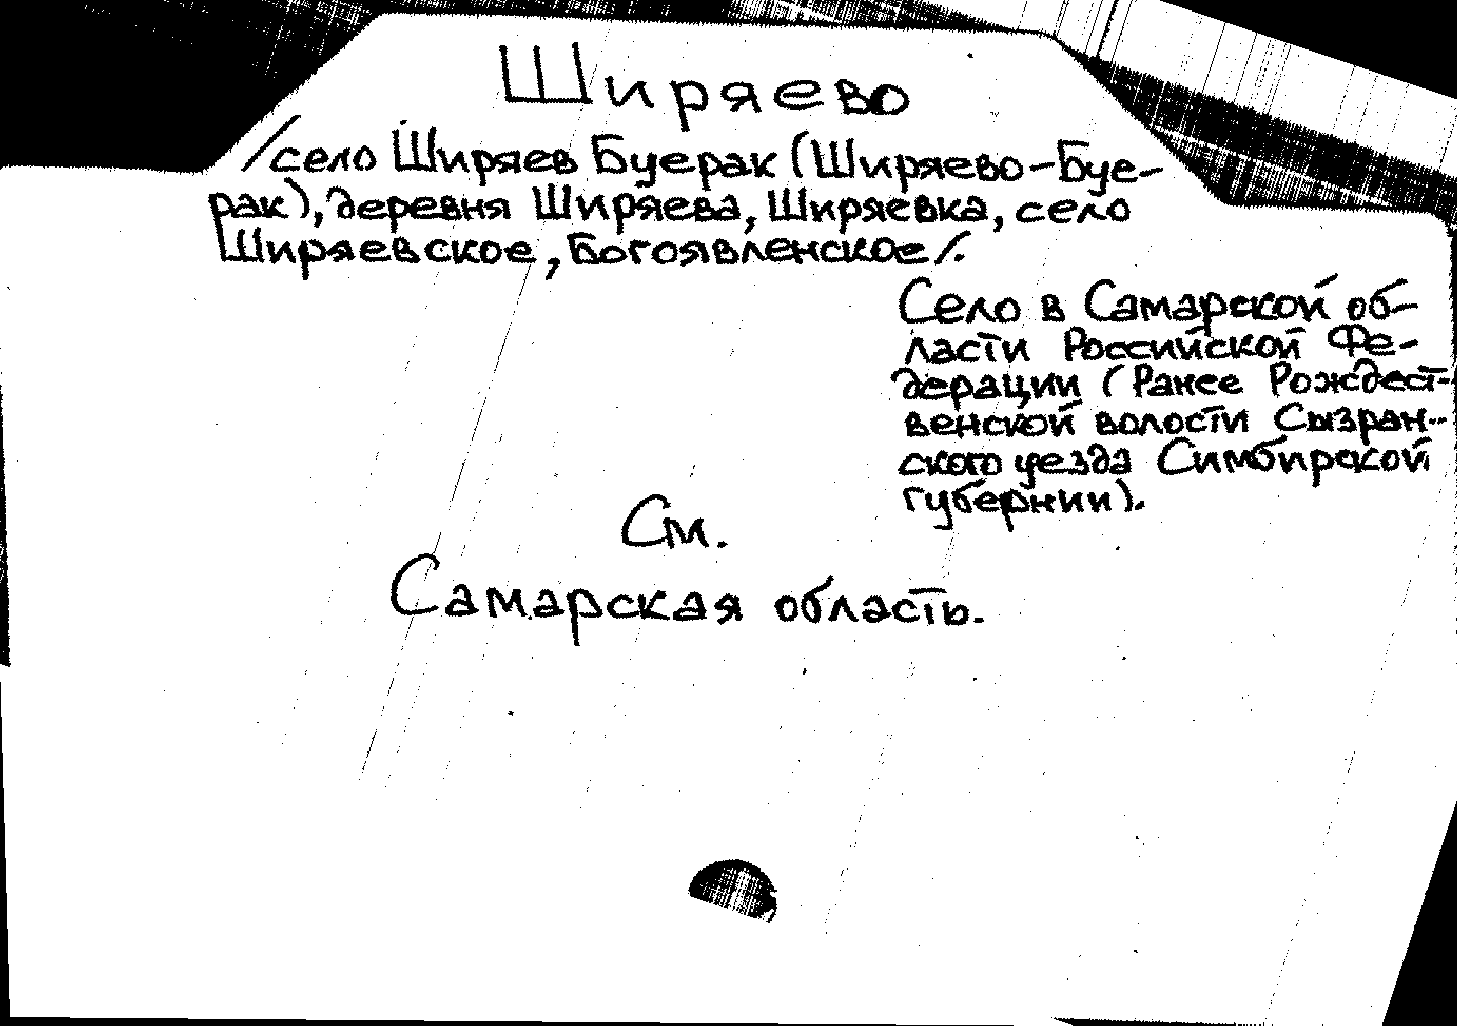 Ширяево
/село Ширяев Буерак (Ширяево-Буе-
рак), деревня Ширяева, Ширяевка, село
Ширяевское, Богоявленское/.
Село в Самарской об-
ласти Российской Фе-
дерации (Ранее Рождест-
венской волости Сызран-
ского уезда Симбирской
губернии).
См.
Самарская область.